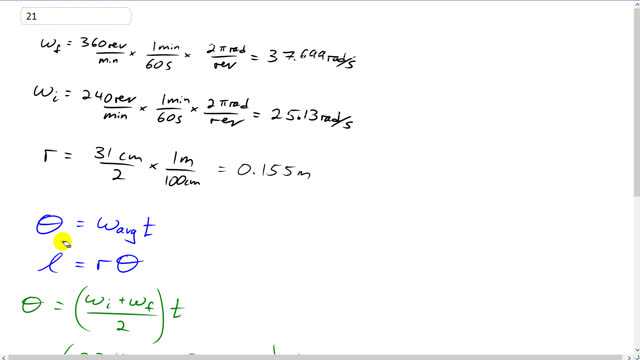 21
ω_f = 360 rev/min × 1 min/60 s × 2π rad/rev = 37.699 rad/s
ω_i = 240 rev/min × 1 min/60 s × 2π rad/rev = 25.13 rad/s
r = 31 cm/2 × 1 m/100 cm = 0.155 m
θ = ω_avg t
l = r θ
θ = ((ω_i + ω_f)/2) t